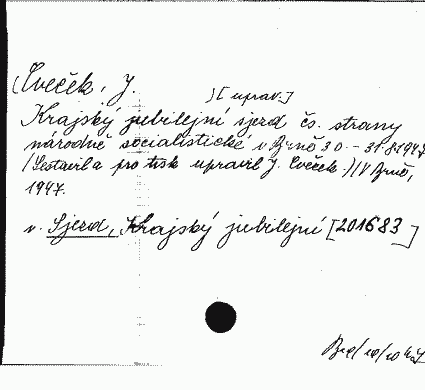 (Cveček, J.
)[uprav.]
Krajský jubilejní sjezd čs. strany
národně socialistické v Brně 30.-31.8.1947
/Sestavil a pro tisk upravil J. Cveček./(V Brně,
1947.
v. Sjezd, Krajský jubilejní [201683]